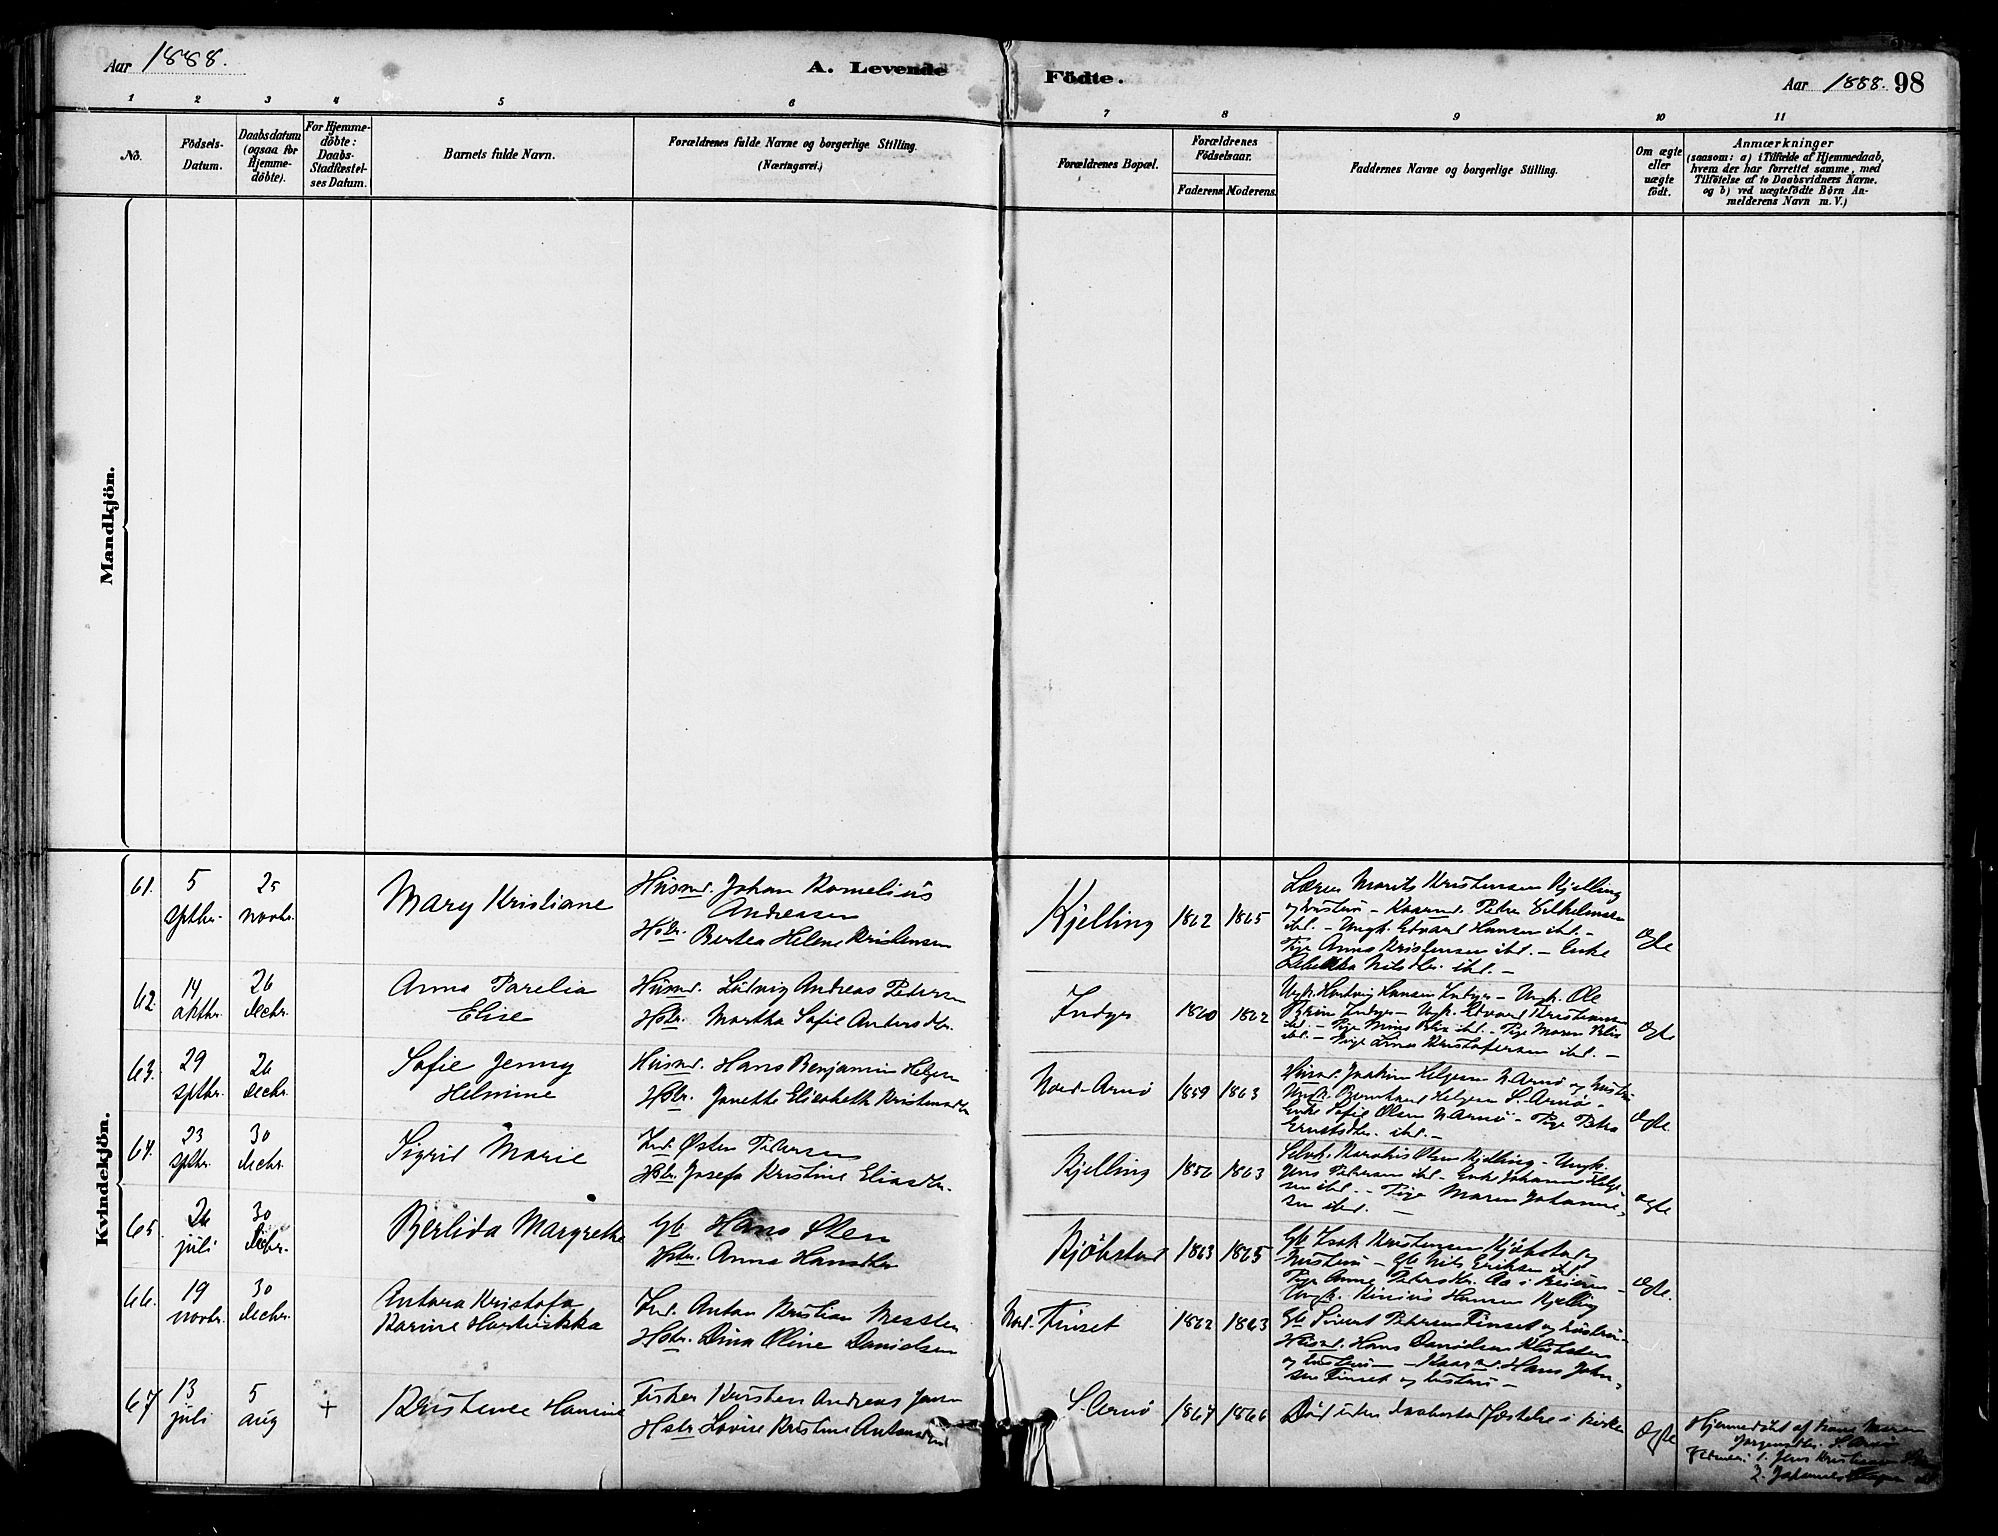 Aar 1888.
A. Levende Födte.
Aar 1888. 98
1 2 3 4 5 6 7 8 9 10 11
No.
Födsels-
Datum.
Daabsdatum
(ogsaa for
Hjemme-
döbte).
For Hjemme-
döbte:
Daabs-
Stadfæstel-
ses Datum.
Barnets fulde Navn.
Forældrenes fulde Navne og borgerlige Stilling.
(Næringsvei.)
Forældrenes Bopæl.
Forældrenes
Födselsaar.
Faderens. Moderens.
Faddernes Navne og borgerlige Stilling.
Om ægte
eller
uægte
født.
Anmærkninger
(saasom: a) i Tilfælde af Hjemmedaab,
hvem der har forrettet samme, med
Tilföielse af to Daabsvidners Navne.
og b) ved uægtefödte Börn An-
melderens Navn m. V.)
Mandkjön.
Kvindekjön.
61. 5 septbr. 25 novbr.
Mary Kristiane
Husmd. Johan Kornelius
Andreasen
Hstr. Bertea Helene Kristensen
Kjelling 1862 1865
Lærer Morits Kristensen Kjelling
og hustru - Kaarmd. Peter Vilhelmsen
ibd. - Ungk. Edvard Hansen ibd. -
Pige Anna Kristensen ibd. - Enke
Nilsdtr. ibd. -
Ægte
62. 14 oktbr. 26 decbr.
Anna Parelia
Elise
Husmd. Ludvig Andreas Petersen
Hstr. Martha Sofie Andersdtr.
Indyr 1860 1862
Ungk. Hartvig Hansen Indyr - Ungk. Ole
Indyr - Ungk. Edvard Kristiansen
ibd. - Pige ibd. - Pige Maren
ibd. - Pige Kristofersen ibd. -
Ægte
63. 29 septbr. 26 decbr.
Sofie Jenny
Helmine
Husmd. Hans Benjamin Helgesen
Hstr. Janette Elisabeth Kristensdtr
Nord-Arnö 1859 1863
Husmd. Joakim Helgesen N. Arnö og hustru
Ungk. Bernhard Helgesen S. Arnö -
Enke Sofie Olsen N. Arnö - Pige Petra
ibd. -
Ægte
64. 23 septbr. 30 decbr.
Sigrid Marie
Ind. Østen Petersen
Hstr. Josefa Kristine Eliasdtr.
Kjelling 1856 1863
Olsen Kjelling - Ungk.
Jens Petersen ibd. - Enke Johanna Helge-
sen ibd. - Pige Maren Johanne-
sen ibd. -
Ægte
65. 26 juli 30 decbr.
Berlida Margrethe
Gb Hans Olsen
Hstr. Anna Hansdtr
Kjöbstad 1863 1865
Gb Isak Kristensen Kjöbstad og
hustru - Gb Nils Eriksen ibd.
Pige Anna Petersdtr. Aa i Beiaren -
Ungk. Hansen Kjelling
Ægte.
66. 19 novbr. 30 decbr.
Antora Kristofa
Karine
Ind. Anton Kristian
Hstr. Dina Oline Danielsen
Nord. Finset 1862 1863
Gb Sivert Petersen Finset og hustru -
Husmd. Hans
og hustru - Kaarmd. Hans John-
sen Finset og hustru -
67. 13 juli 5 aug +
Kristence Hansine
Fisker Kristen Andreas
Hstr Lovise Kristine
S. Arnö 1864 1866
Död uden Daabsstadfæstelse i Kirke
Ægte
Hjemmedöbt af Maren
Jörgensdtr. S. Arnö
1. Jens Kristian
2. Johannes